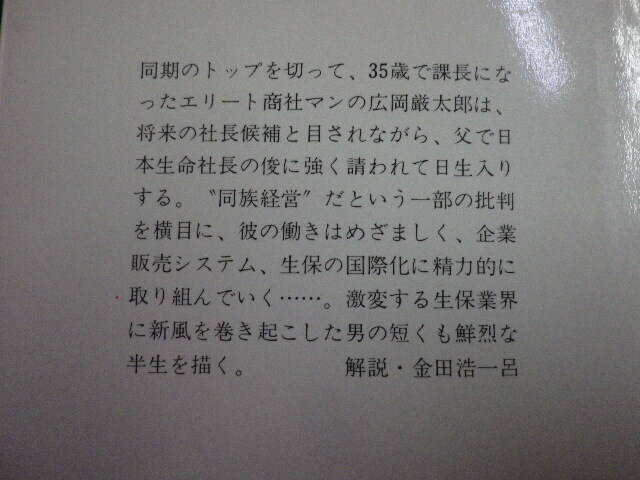 同期のトップを切って、35歳で課長にな
ったエリート商社マンの広岡厳太郎は、
将来の社長候補と目されながら、父で日
本生命社長の俊に強く請われて日生入り
する。〝同族経営〟だという一部の批判
を横目に、彼の働きはめざましく、企業
販売システム、生保の国際化に精力的に
取り組んでいく……。激変する生保業界
に新風を巻き起こした男の短くも鮮烈な
半生を描く。　　　解説・金田浩一呂